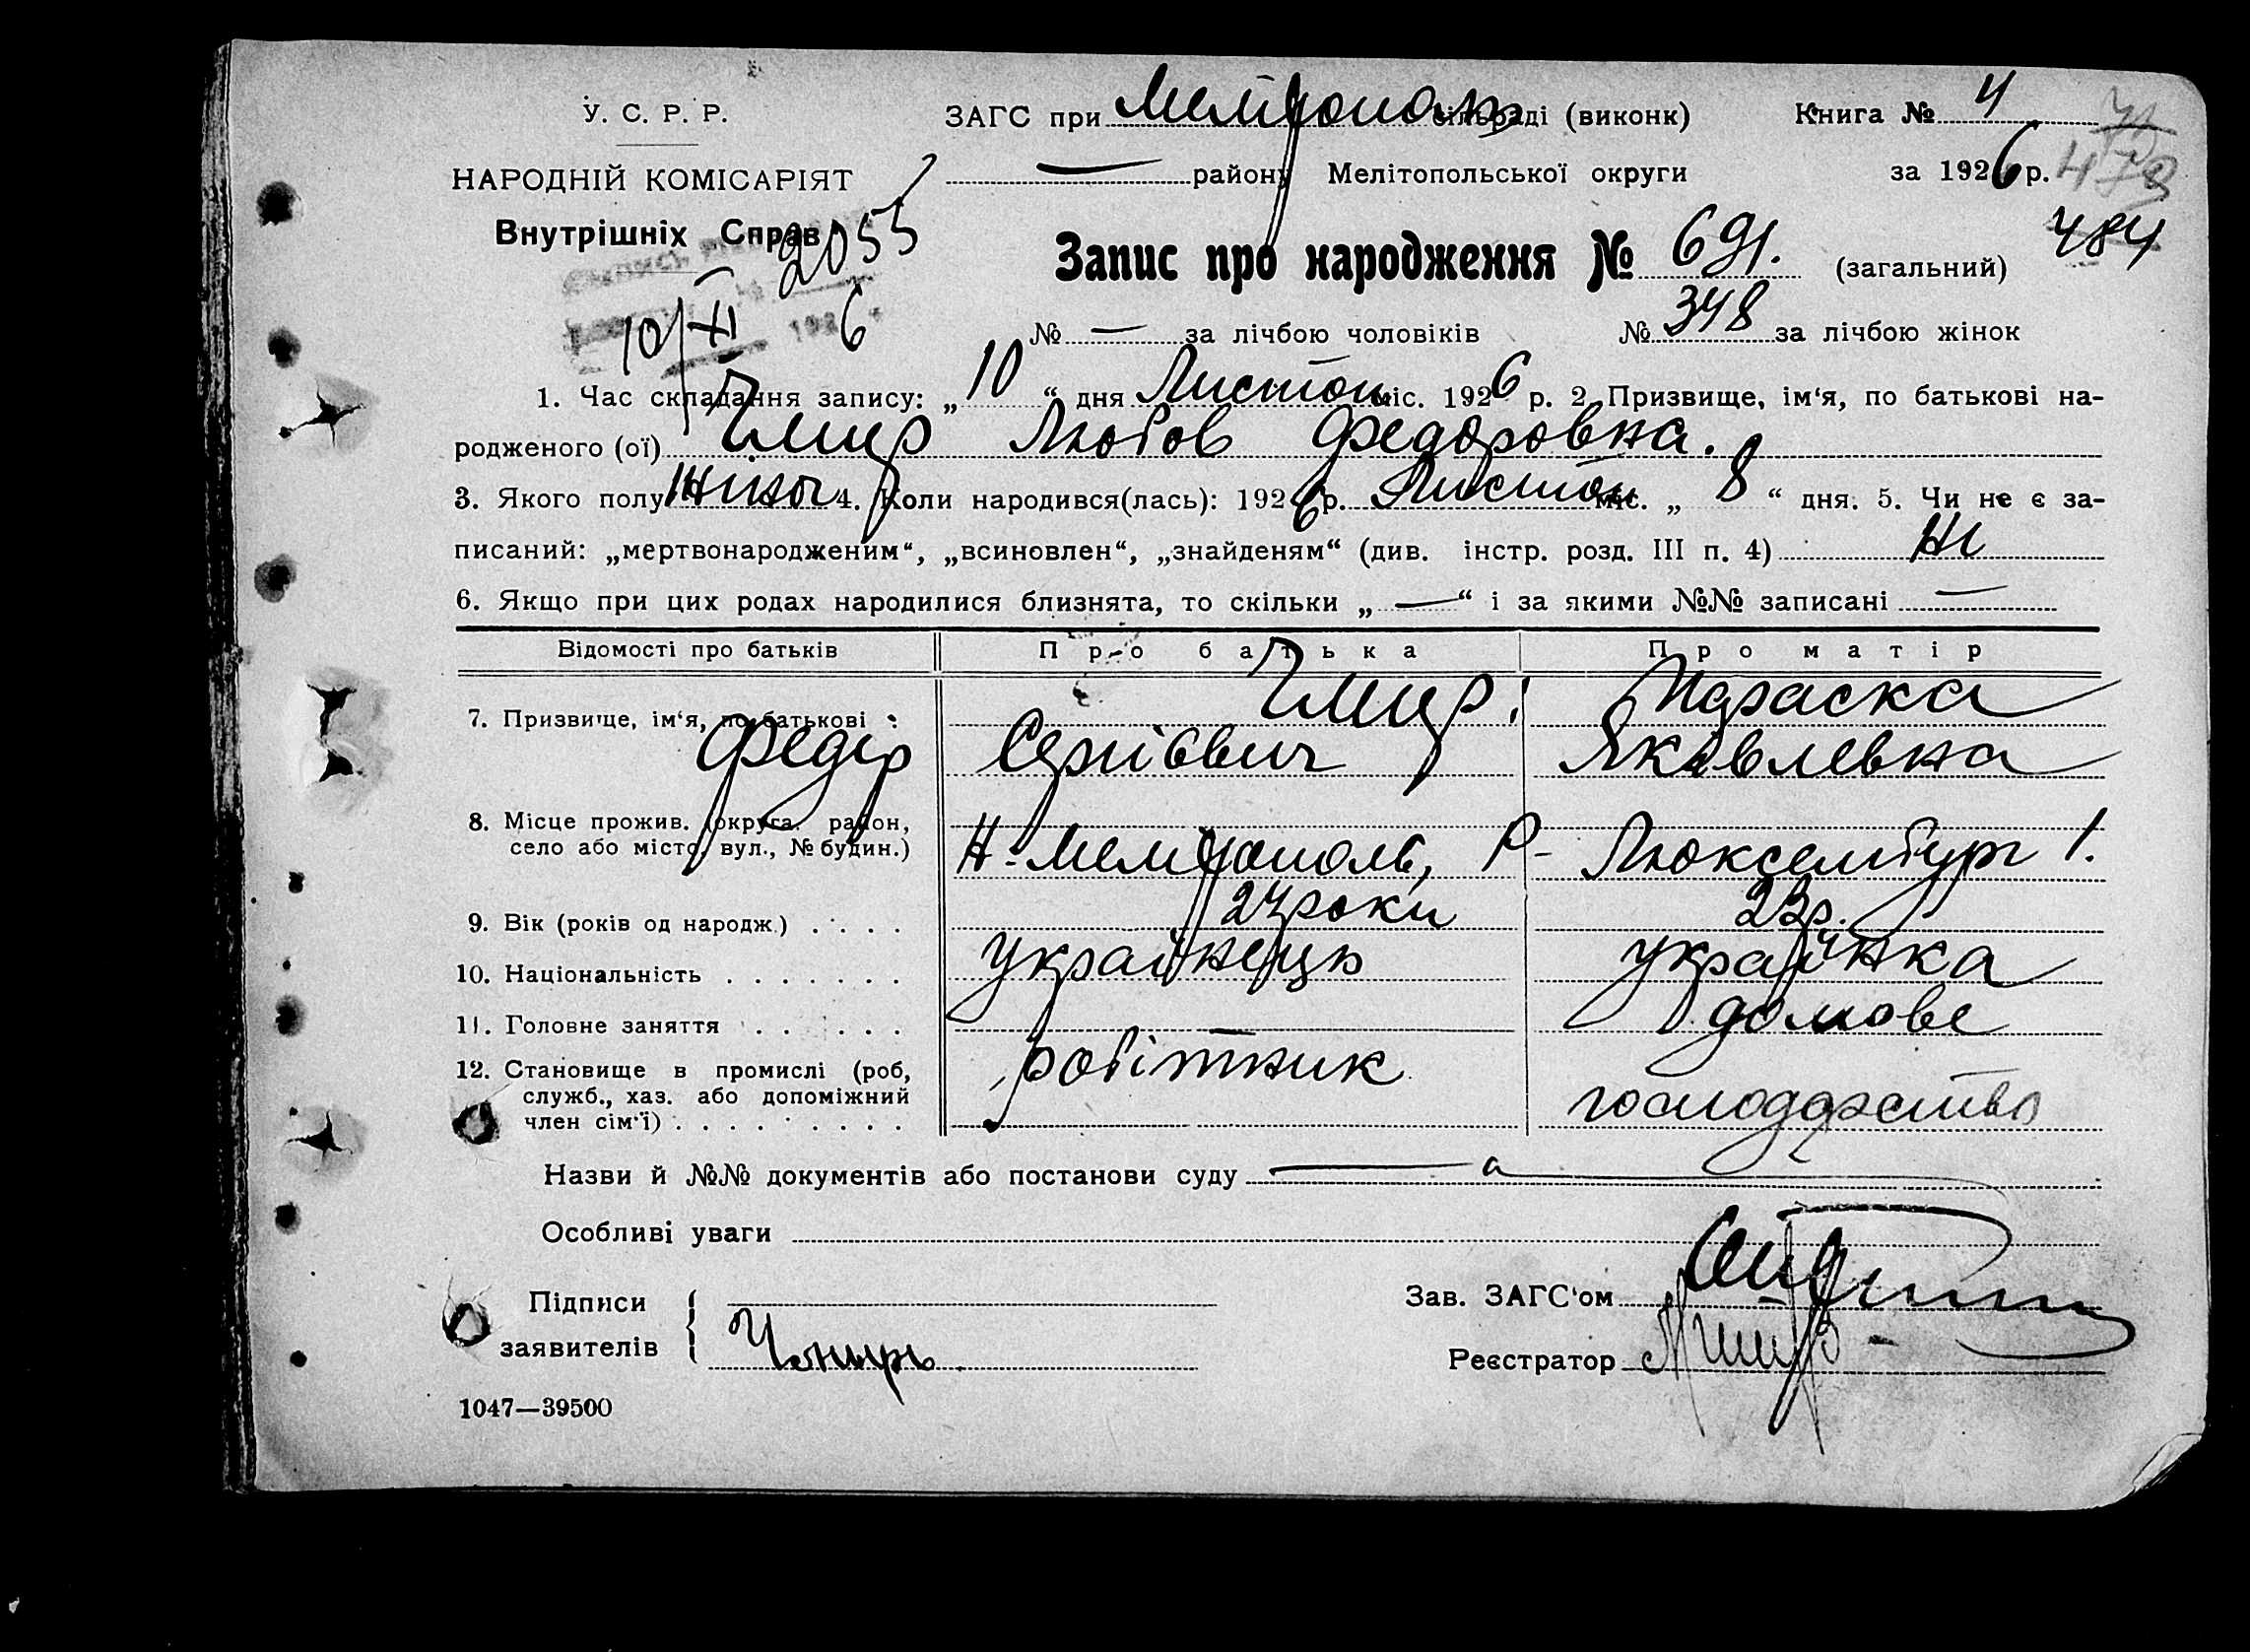 У. С. Р. Р.
НАРОДНІЙ КОМІСАРІЯТ
Внутрішніх Справ
2055
10/XI 1926
ЗАГС при Мелітополь сільраді (виконк)
— району Мелітопольської округи
Книга № 4
за 1926 р.
478
484
Запис про народження № 691. (загальний)
№ — за лічбою чоловіків № 348 за лічбою жінок
1. Час складання запису: „10“ дня Листоп. міс. 1926 р. 2. Призвище, ім‘я, по батькові на-
родженого (ої) Чмир Любов Федоровна.
3. Якого полу Жіноч 4. Коли народився(лась): 1926 р. Листоп міс. „ 8 “ дня. 5. Чи не є за-
писаний: „мертвонародженим“, „всиновлен“, „знайденям“ (див. інстр. розд. III п. 4) Ні
6. Якщо при цих родах народилися близнята, то скільки „ — “ і за якими №№ записані —
Відомості про батьків Про батька Про матір
7. Призвище, ім‘я, по батькові : Чмир. Параска
Федір Сергієвич Яковлевна
8. Місце прожив. (округа, район,
село або місто, вул., № будин.) Н-Мелітополь, Р- Люксембург 1.
9. Вік (років од народж.) . . . . 24 роки 23 р.
10. Національність . . . . . . . українець українка
11. Головне заняття . . . . . . домове
12. Становище в промислі (роб, робітник
служб., хаз. або допоміжний господарство
член сім‘ї) . . . . . . . . .
Назви й №№ документів або постанови суду —
Особливі уваги
Підписи
заявителів { Чмирь
Зав. ЗАГС‘ом
Реєстратор
1047—39500